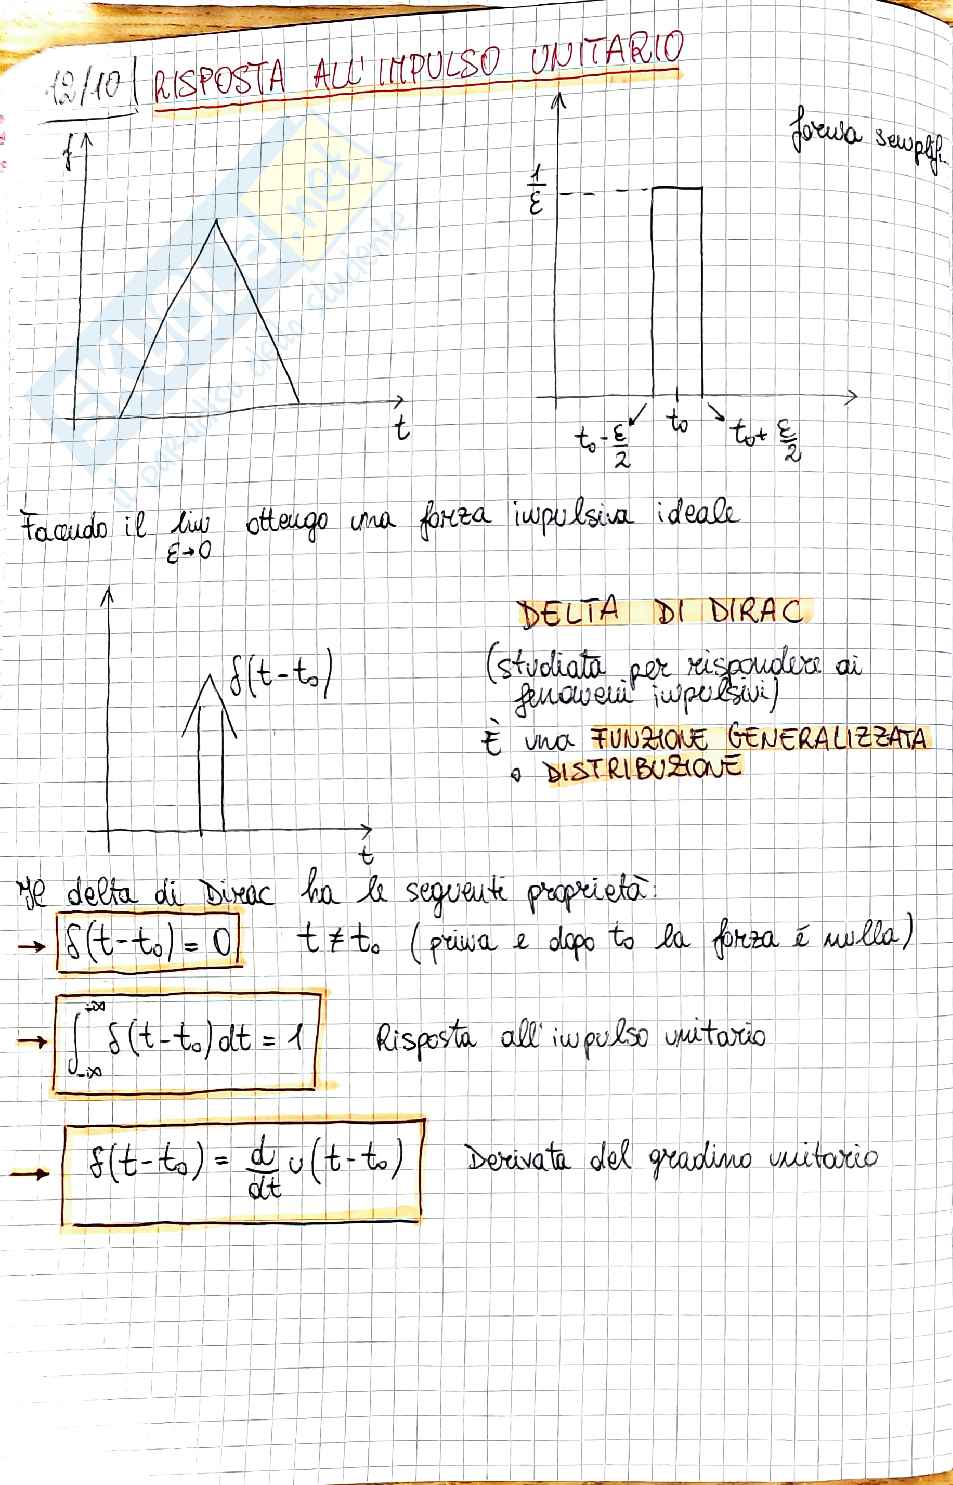 12/10 RISPOSTA ALL'IMPULSO UNITARIO
forma semplifi.
f
t
1/ε
t₀-ε/2 t₀ t₀+ε/2
SKUOLA.net
il paradiso dello studente
Facendo il lim ottengo una forza impulsiva ideale
ε→0
δ(t-t₀)
t
DELTA DI DIRAC
(studiata per rispondere ai
fenomeni impulsivi)
È una FUNZIONE GENERALIZZATA
o DISTRIBUZIONE
Il delta di Dirac ha le seguenti proprietà:
→ δ(t-t₀)=0 t≠t₀ (prima e dopo to la forza è nulla)
→ ∫_-∞^+∞ δ(t-t₀)dt=1 Risposta all'impulso unitario
→ δ(t-t₀)= d/dt u(t-t₀) Derivata del gradino unitario